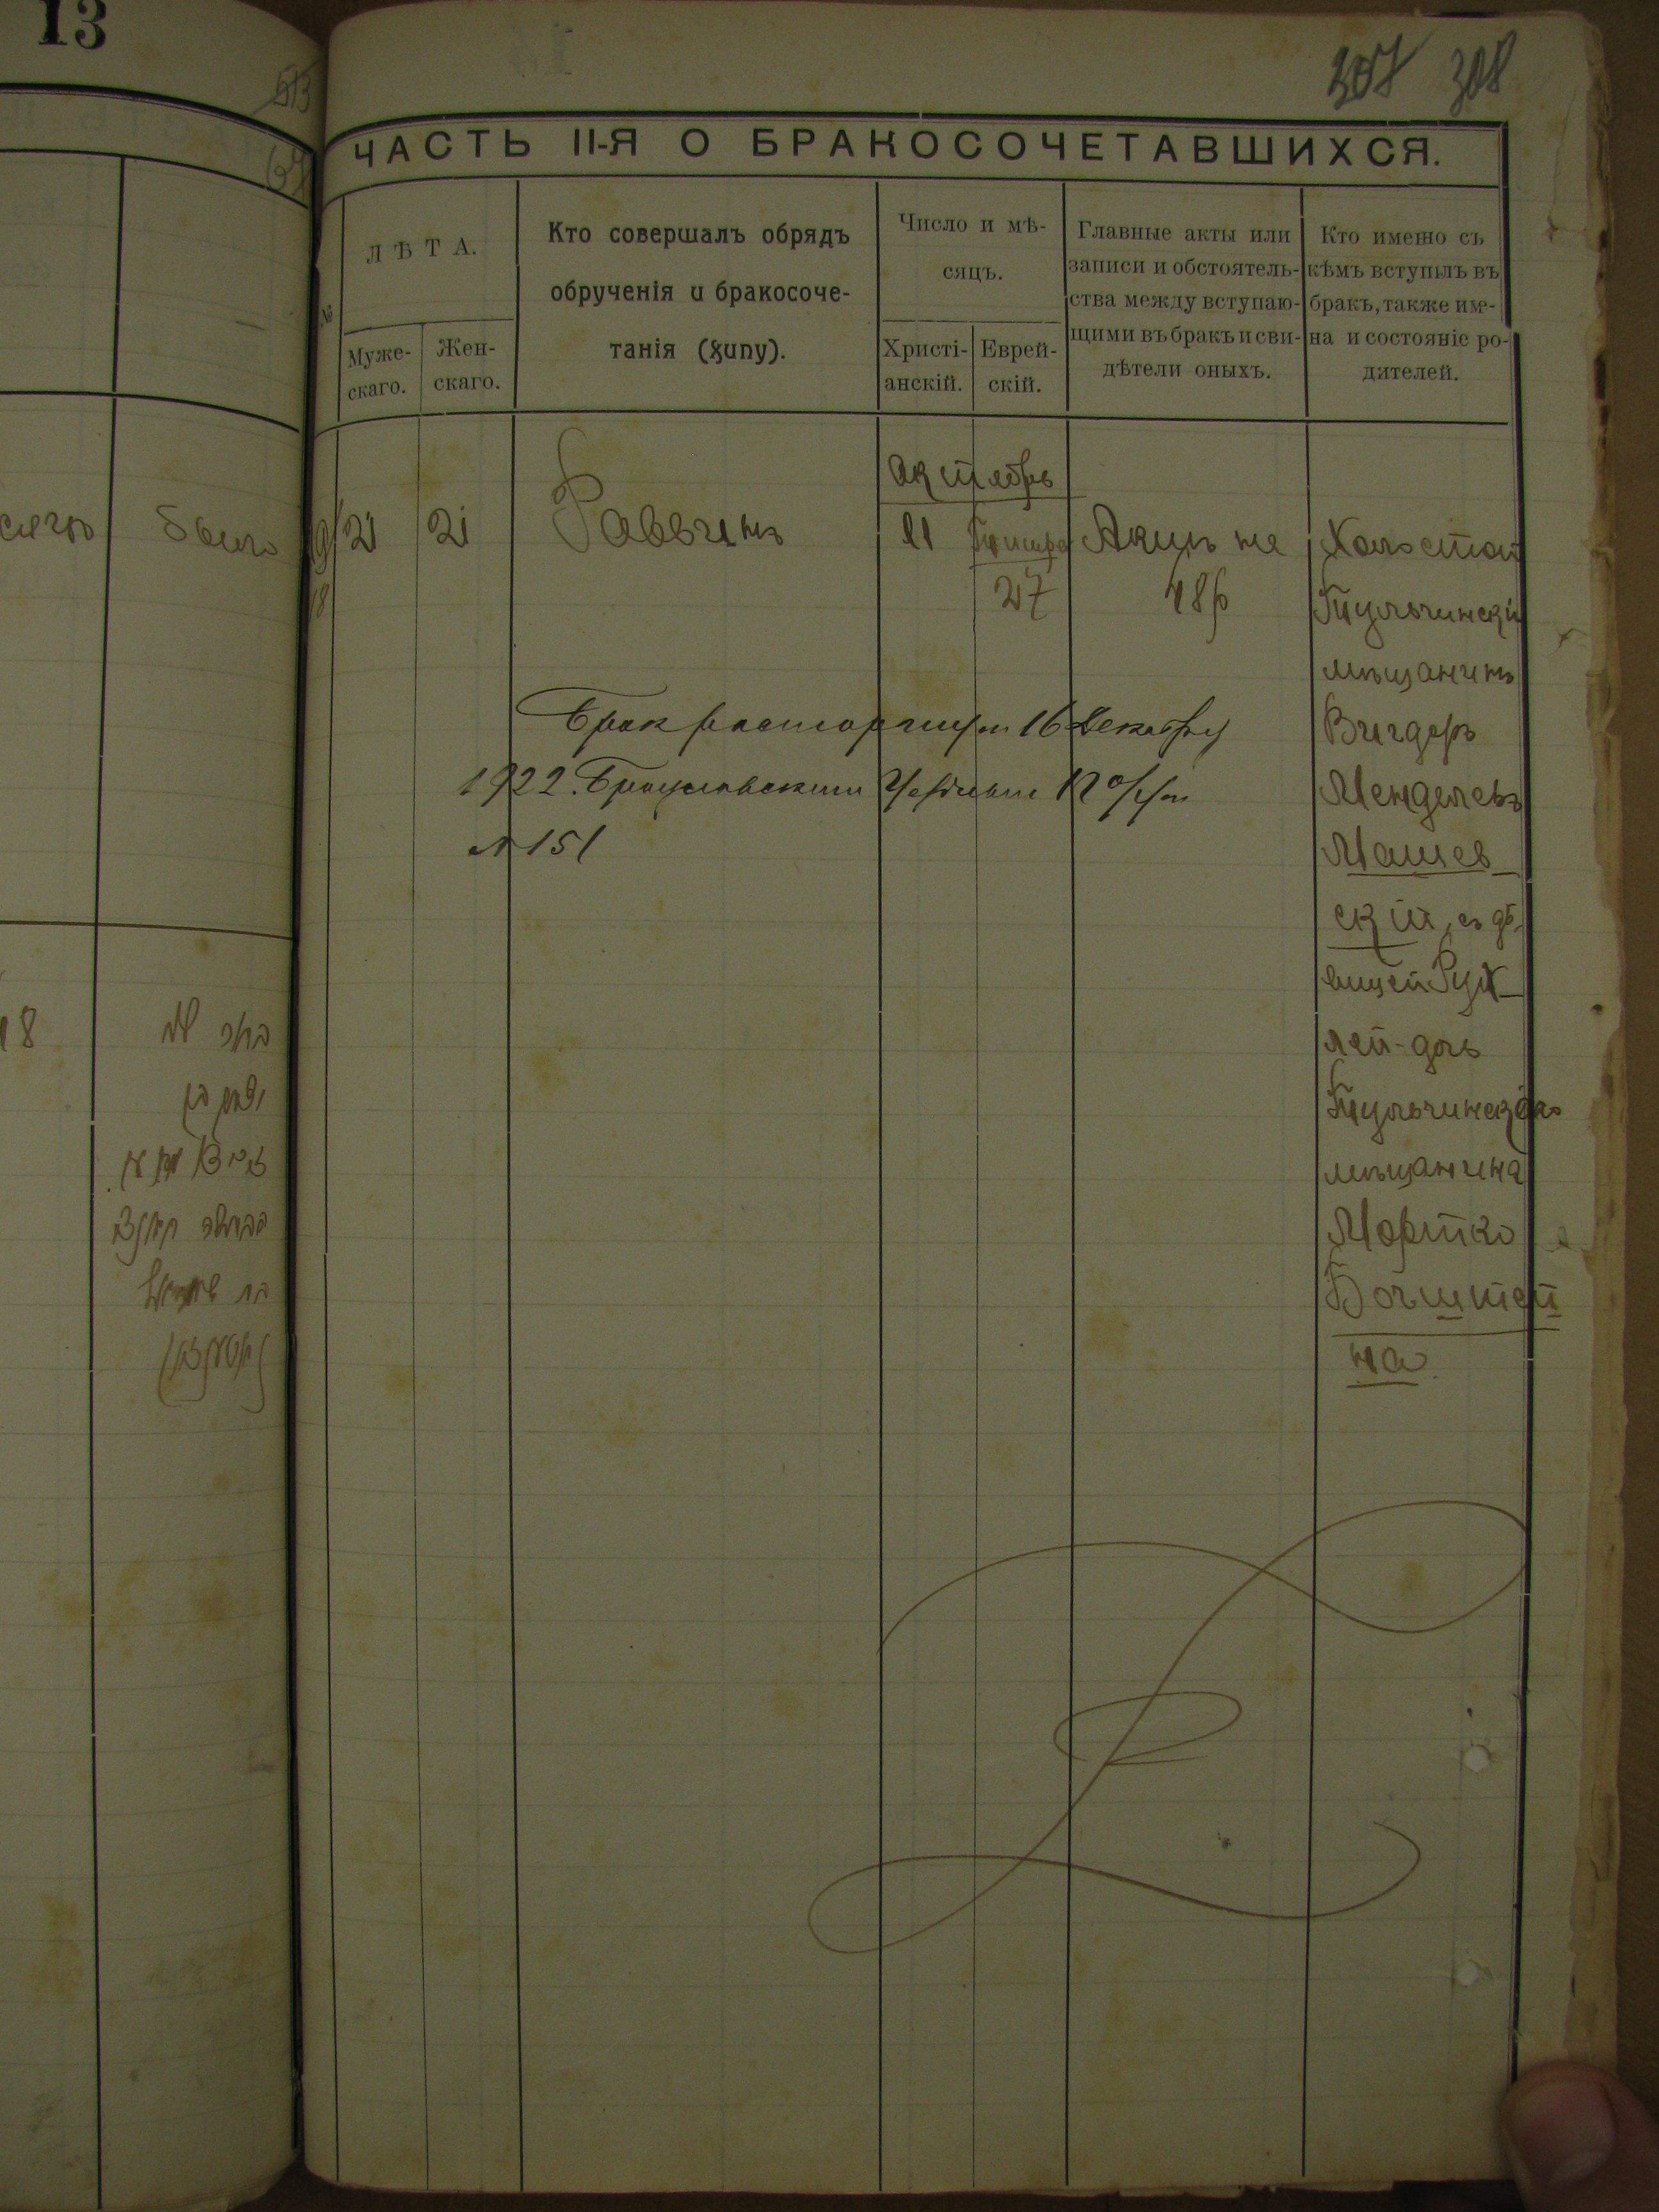 13
307 308
ЧАСТЬ II-Я О БРАКОСОЧЕТАВШИХСЯ.
№
ЛѢТА.
Муже-
скаго.
Жен-
скаго.
Кто совершалъ обрядъ
обрученія и бракосоче-
танія (хипу).
Число и мѣ-
сяцъ.
Христі-
анскій.
Еврей-
скій.
Главные акты или
записи и обстоятель-
ства между вступаю-
щими въ бракъ и сви-
дѣтели оныхъ.
Кто именно съ
кѣмъ вступилъ въ
бракъ, также име-
на и состояніе ро-
дителей.
было
19
18
21
21
Раввинъ
Октябрь
21
Тишра
27
Актъ на
48р
Холостой
Тульчинскій
мѣщанинъ
Вигдоръ
Менделевъ
Машев
скій, съ дѣ-
вицей Рух
лей-дочь
Тульчинскаго
мѣщанина
Мортко
Бочштей
на.
Брак расторгнут 16 Декабря
1922. Брацлавским
№ 151
18